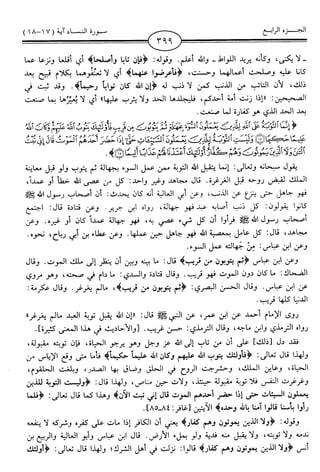 الجزء الرابع
٣٩٩
سورة النساء آية (١٧-١٨)
ـ لا يكنى، وكأنه يريد اللواط ـ والله أعلم. وقوله: ﴿فإن تابا وأصلحا﴾ أي أقلعا ونزعا عما
كانا عليه وصلحت أعمالهما وحسنت، ﴿فأعرضوا عنهما﴾ أي لا تعنفوهما بكلام قبيح بعد
ذلك، لأن التائب من الذنب كمن لا ذنب له ﴿إن الله كان تواباً رحيماً﴾. وقد ثبت في
الصحيحين: «إذا زنت أمة أحدكم، فليجلدها الحد ولا يثرب عليها» أي لا يعيرها بما صنعت
بعد الحد الذي هو كفارة لما صنعت.
﴿إنما التوبة على الله للذين يعملون السوء بجهالة ثم يتوبون من قريب فأولئك يتوب الله عليهم وكان الله عليما
حكيما ﴿١٧﴾ وليست التوبة للذين يعملون السيئات حتى إذا حضر أحدهم الموت قال إني تبت
الآن ولا الذين يموتون وهم كفار أولئك أعتدنا لهم عذابا أليما ﴿١٨﴾﴾
يقول سبحانه وتعالى: إنما يتقبل الله التوبة ممن عمل السوء بجهالة ثم يتوب ولو قبل معاينة
الملك لقبض روحه قبل الغرغرة. قال مجاهد وغير واحد: كل من عصى الله خطأ أو عمداً،
فهو جاهل حتى ينزع عن الذنب، وعن أبي العالية أنه كان يحدث: أن أصحاب رسول الله ﷺ
كانوا يقولون: كل ذنب أصابه عبد فهو جهالة، رواه ابن جرير. وعن قتادة قال: اجتمع
أصحاب رسول الله ﷺ فرأوا أن كل شيء عصي به، فهو جهالة عمداً كان أو غيره. وعن
مجاهد، قال: كل عامل بمعصية الله فهو جاهل حين عملها. وعن عطاء بن أبي رباح، نحوه.
وعن ابن عباس: مِنْ جَهالته عمل السوء.
وعن ابن عباس ﴿ثم يتوبون من قريب﴾، قال: ما بينه وبين أن ينظر إلى ملك الموت. وقال
الضحاك: ما كان دون الموت فهو قريب. وقال قتادة والسدي: ما دام في صحته، وهو مروي
عن ابن عباس. وقال الحسن البصري: ﴿ثم يتوبون من قريب﴾، مالم يغرغر. وقال عكرمة:
الدنيا كلها قريب.
روى الإمام أحمد عن ابن عمر، عن النبي ﷺ قال: «إن الله يقبل توبة العبد مالم يغرغر»
رواه الترمذي وابن ماجه، وقال الترمذي: حسن غريب. [والأحاديث في هذا المعنى كثيرة].
فقد دل [ذلك] على أن من تاب إلى الله عز وجل وهو يرجو الحياة، فإن توبته مقبولة،
ولهذا قال تعالى: ﴿فأولئك يتوب الله عليهم وكان الله عليماً حكيماً﴾ فأما متى وقع الإياس من
الحياة، وعاين الملك، وحشرجت الروح في الحلق وضاق بها الصدر، وبلغت الحلقوم،
وغرغرت النفس فلا توبة مقبولة حينئذ، ولات حين مناص، ولهذا قال: ﴿وليست التوبة للذين
يعملون السيئات حتى إذا حضر أحدهم الموت قال إني تبت الآن﴾ وهذا كما قال تعالى: ﴿فلما
رأوا بأسنا قالوا آمنا بالله وحده﴾ الآيتين [غافر: ٨٤ـ٨٥].
وقوله: ﴿ولا الذين يموتون وهم كفار﴾ يعني أن الكافر إذا مات على كفره وشركه لا ينفعه
ندمه ولا توبته، ولا يقبل منه فدية ولو بملء الأرض. قال ابن عباس وأبو العالية والربيع بن
أنس ﴿ولا الذين يموتون وهم كفار﴾ قالوا: نزلت في أهل الشرك؛ ولهذا قال تعالى: ﴿أولئك